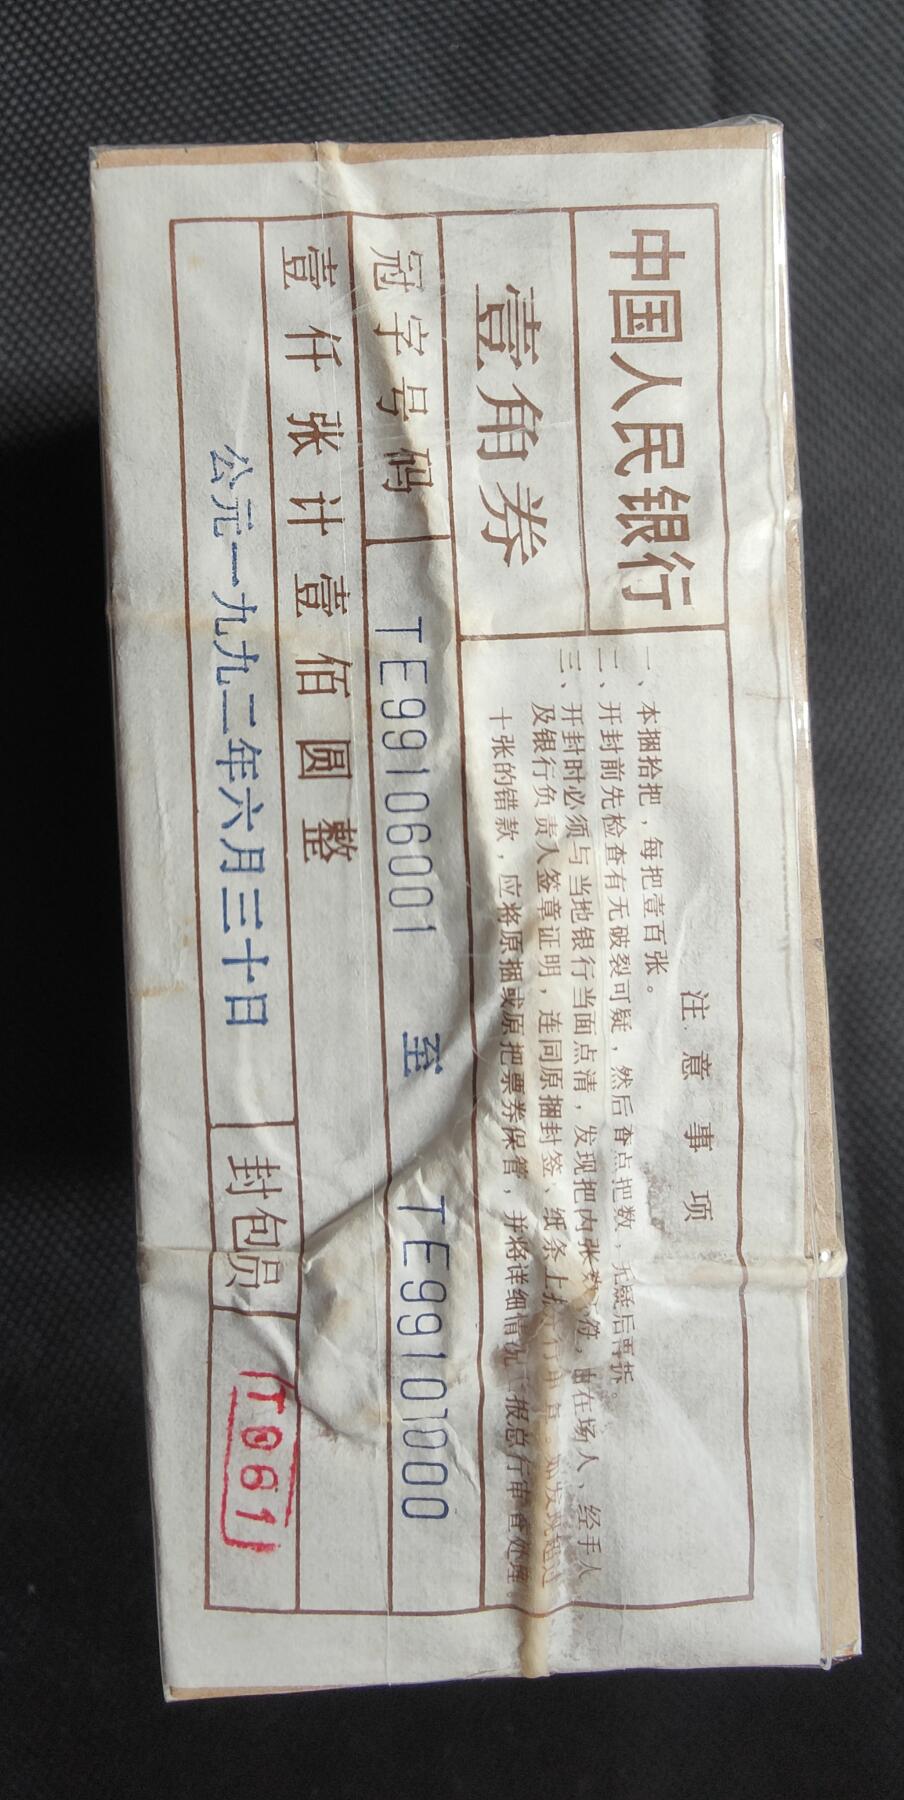 中国人民银行
壹角券
注意事项
一、本捆拾把，每把壹百张。
二、开封前先检查有无破裂可疑，然后查点把数，无疑后再拆。
三、开封时必须与当地银行当面点清，发现把内张数不符，由在场人、经手人
及银行负责人签章证明，连同原捆封签、纸条上 行 。如发现超过
十张的错款，应将原捆或原把票券保管，并将详细情况 报总行审查处理
冠字号码 TE99106001 至 TE99107000
壹仟张计壹佰圆整
公元一九九二年六月三十日 封包员 T061